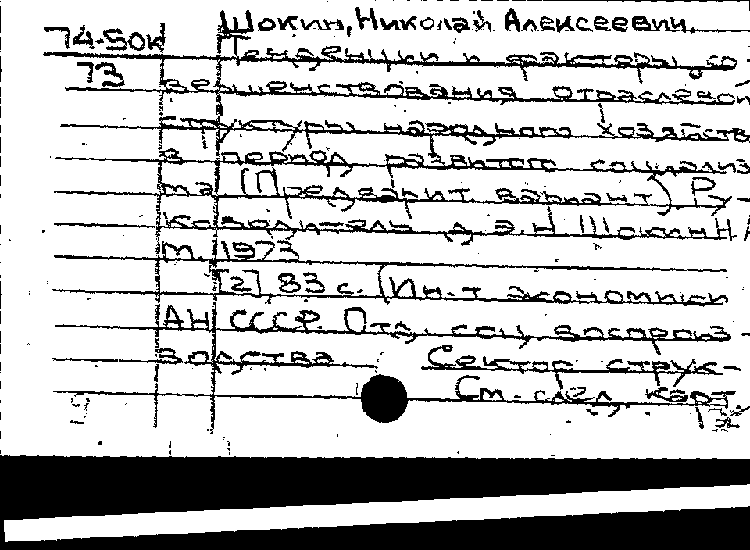 Шокин, Николай Алексеевич.
74-50к
Тенденции и факторы со-
73
вершенствования отраслевой
структуры народного хозяйств
в период развитого социализ
ма (Предварит. вариант). Ру-
ководитель д.э.н. Шокин Н.А
М. 1973
[2], 83 с. (Ин-т экономики
АН СССР. Отд. соц. воспроиз-
водства. Сектор струк-
См. след. карт.
9